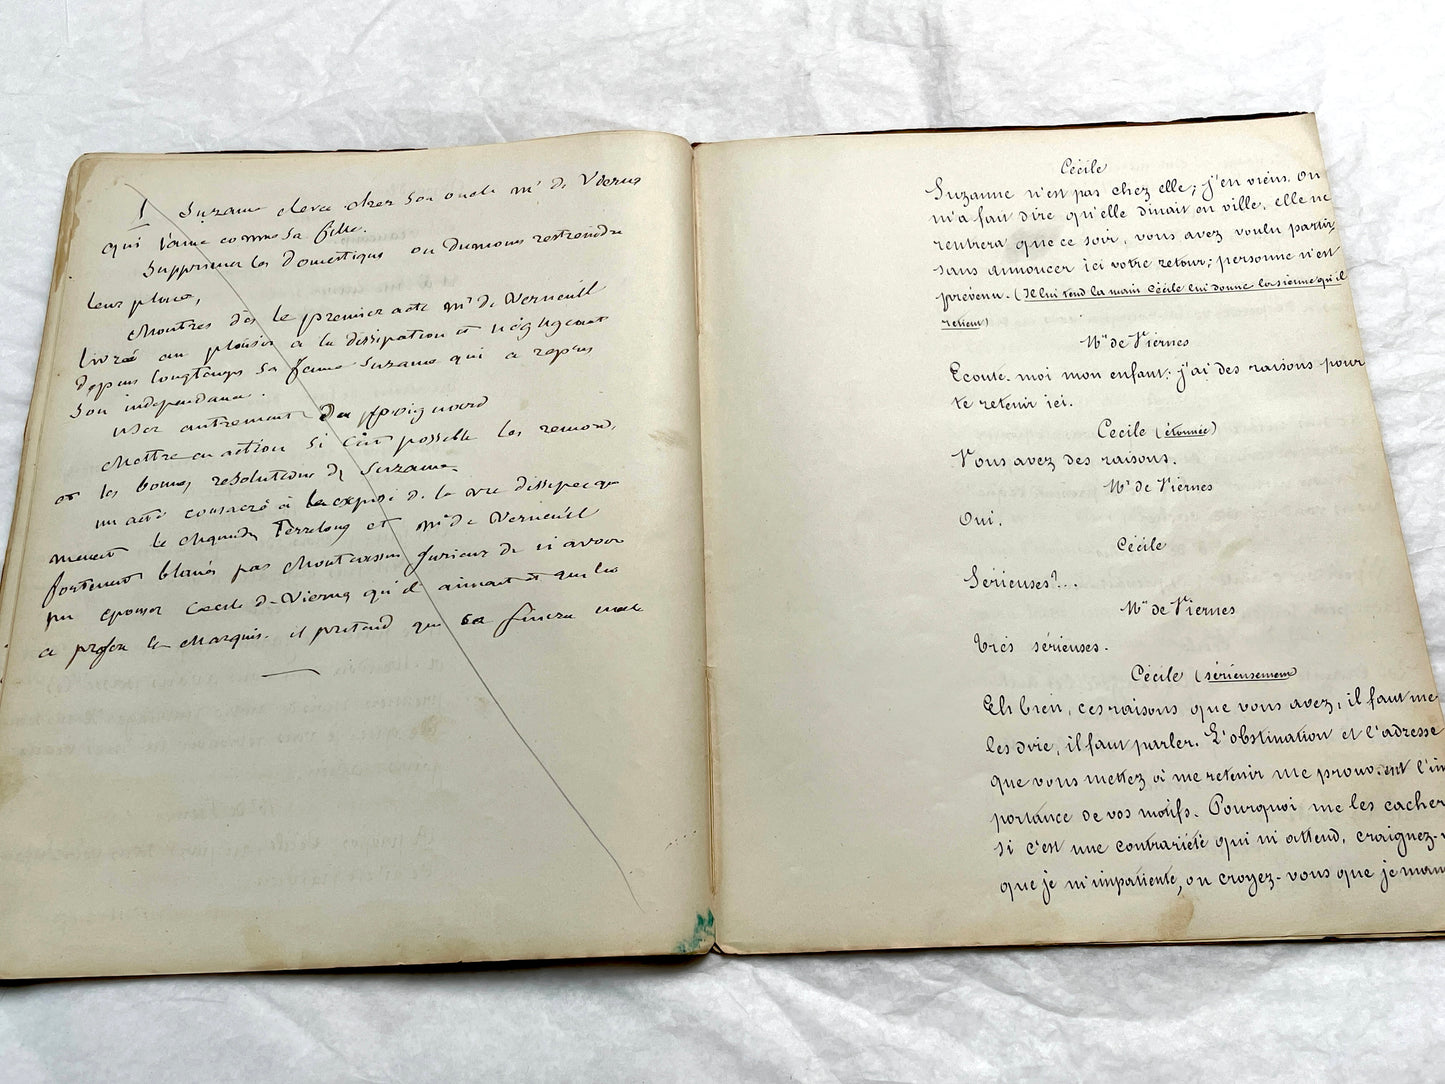 1 Suzanne elevée chez son oncle Mr de Viernes
qui l'aime comme sa fille.
Supprimer les domestiques ou du moins restreindre
leur place,
Montrer dès le premier acte Mr de Verneuil
livré au plaisir à la dissipation et négligeant
depuis longtemps sa femme Suzanne qui a repris
son independance.
user autrement du poignard
Mettre en action si c'est possible les remords,
et les bonnes resolutions de Suzanne
un acte consacré à la vie dissipée que
menent le Terrelong et Mr de Verneuil
fortement blamés par furieux de n'avoir
pu epouser Cecile de Viernes qu'il aimait et qui lui
a préféré le Marquis. il pretend que sa finira mal
Cécile
Suzanne n'est pas chez elle; j'en viens. On
m'a fait dire qu'elle dinait en ville, elle ne
rentrera que ce soir, vous avez voulu partir
sans annoncer ici votre retour; personne n'est
prévenu. (Il lui tend la main Cécile lui donne la sienne qu'il
retient)
Mr de Viernes
Ecoute-moi mon enfant; j'ai des raisons pour
te retenir ici.
Cecile (étonnée)
Vous avez des raisons.
Mr de Viernes
Oui.
Cécile
Sérieuses?..
Mr de Viernes
Très sérieuses.
Cécile (sérieusement
Eh bien, ces raisons que vous avez, il faut me
les dire, il faut parler. L'obstination et l'adresse
que vous mettez à me retenir me prouvent l'im
portance de vos motifs. Pourquoi me les cacher
si c'est une contrariété qui m'attend, craignez-
que je m'impatiente, ou croyez-vous que je man